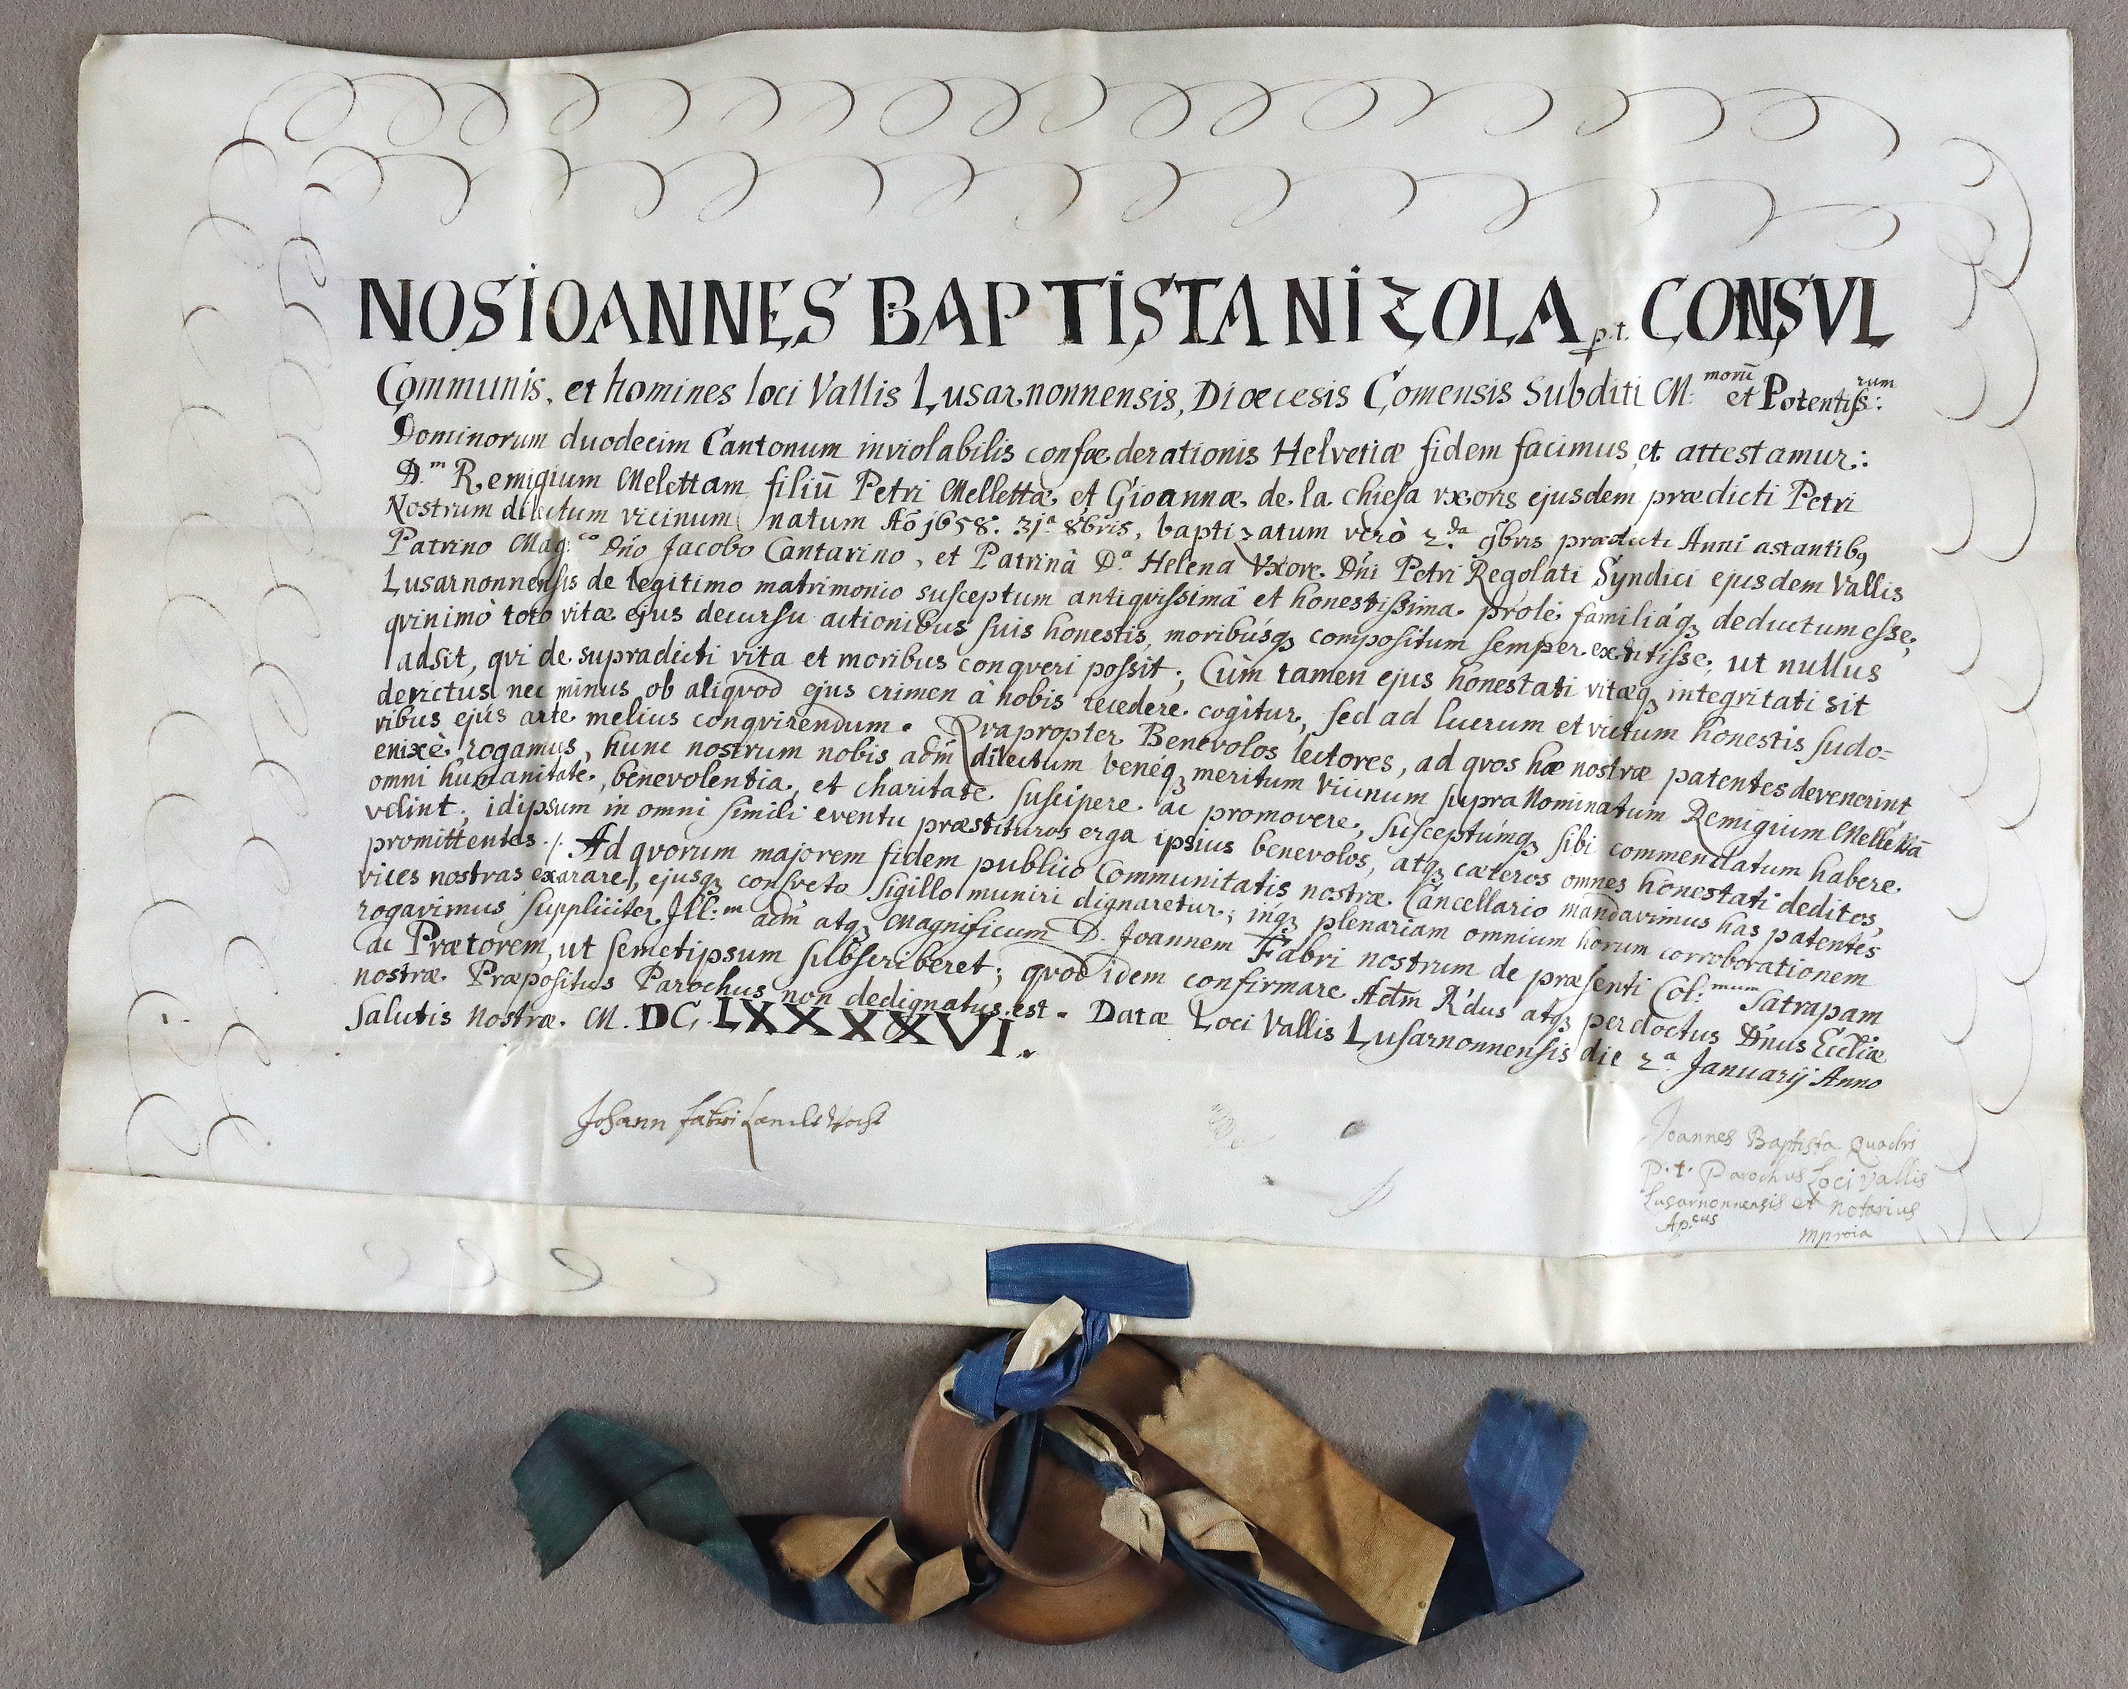 NOS IOANNES BAPTISTA NIZOLA p.t. CONSVL
Communis, et homines loci Vallis Lusarnonnensis, Dioecesis Comensis Subditi M:morũ et Potentiss:rum
Dominorum duodecim Cantonum inviolabilis confœderationis Helvetiæ fidem facimus et attestamur:
D.m Remigium Melettam filiũ Petri Mellettæ et Gioannæ de la chiesa vxoris ejusdem prædicti Petri
Nostrum dilectum vicinum natum Aõ 1658. 31.a 8bris, baptizatum verò 2.da 9bris prædicti Anni astantibq
Patrino Mag:co Dño Jacobo Cantarino, et Patrinâ D.a Helena Vxore Dñi Petri Regolati Syndici ejusdem Vallis
Lusarnonnensis de legitimo matrimonio susceptum antiqvissimâ et honestissima prole familiáq; deductum esse,
qvinimò toto vitæ ejus decursu actionibus suis honestis, moribúsq; compositum semper extitisse, ut nullus
adsit, qvi de supradicti vita et moribus conqveri possit; Cùm tamen ejus honestati vitæq; integritati sit
derictus nec minus ob aliqvod ejus crimen à nobis recedere cogitur, sed ad lucrum et victum honestis sudo-
ribus ejus arte melius conqvirendum. Qvapropter Benevolos lectores, ad qvos hæ nostræ patentes devenerint,
enixè rogamus, hunc nostrum nobis adm̃ dilectum beneq; meritum vicinum supra Nominatum Remigium Mellettã
omni humanitate, benevolentia, et charitate suscipere ac promovere, susceptúmq; sibi commendatum habere
velint; idipsum in omni simili eventu præstituros erga ipsius benevolos, atq; cæteros omnes honestati deditos,
promittentes ./. Ad qvorum majorem fidem publico Communitatis nostræ Cancellario mandavimus has patentes
vices nostras exarare, ejusq; consveto sigillo muniri dignaretur; inq; plenariam omnium horum corroborationem
rogavimus suppliciter Ill:m adm̃ atq; Magnificum D. Joannem Fabri nostrum de præsenti Col:mum Satrapam
ac Prætorem, ut semetipsum subscriberet; qvod idem confirmare Adm̃ R'dus atq; perdoctus D'nus Eccliæ
nostræ Præpositus Parochus non dedignatus est. Datæ Loci Vallis Lusarnonnensis die 2.a Januarij Anno
Salutis Nostræ M. DC. LXXXXVI.
Johann Fabri Landt Vocht
Joannes Baptista Quadri
P. t. Parochus Loci Vallis
Lusarnonnensis et Notarius
Ap.cus mproia